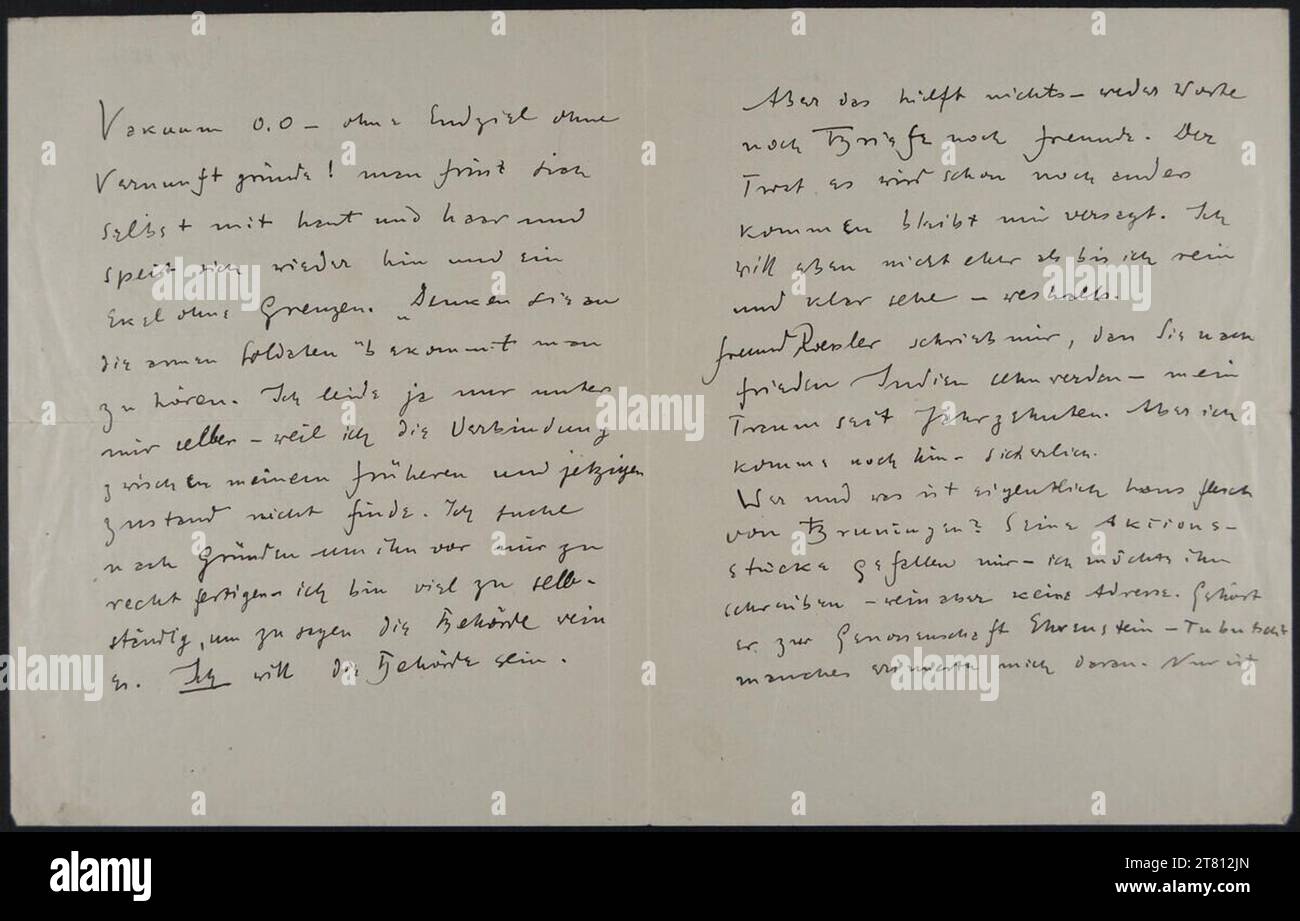 Vakuum 0.0 – ohne Endziel ohne
Vernunftgründe! man frisst sich
selbst mit haut und haar und
speit sich wieder hin und ein
Ekel ohne Grenzen. „Denken Sie an
die armen Soldaten" bekommt man
zu hören. Ich leide ja nur unter
mir selber – weil ich die Verbindung
zwischen meinem früheren und jetzigen
zustand nicht finde. Ich suche
nach Gründen um ihn vor mir zu
rechtfertigen ich bin viel zu selb-
ständig, um zu sagen die Behörde
es. Ich will die Behörde sein.
Aber das hilft nichts – weder Worte
noch Briefe noch freunde. Der
Trost es wird schon noch anders
kommen bleibt mir versagt. Ich
will eben nicht eher als bis ich rein
und klar sehe – weshalb.
freund Roessler schrieb mir, dass Sie nach
frieden Indien sehn werden – mein
Traum seit Jahrzehnten. Aber ich
komme noch hin – sicherlich.
Wer und was ist eigentlich hans flesch
von Bruningen? Seine Aktions-
stücke gefallen mir – ich möchte ihm
schreiben – weiss aber keine Adresse. Gehört
er zur Genossenschaft Ehrenstein – Tubutsch
manches erinnerte mich daran. Nur ist
alamy
Image ID: 2T812JN
www.alamy.com